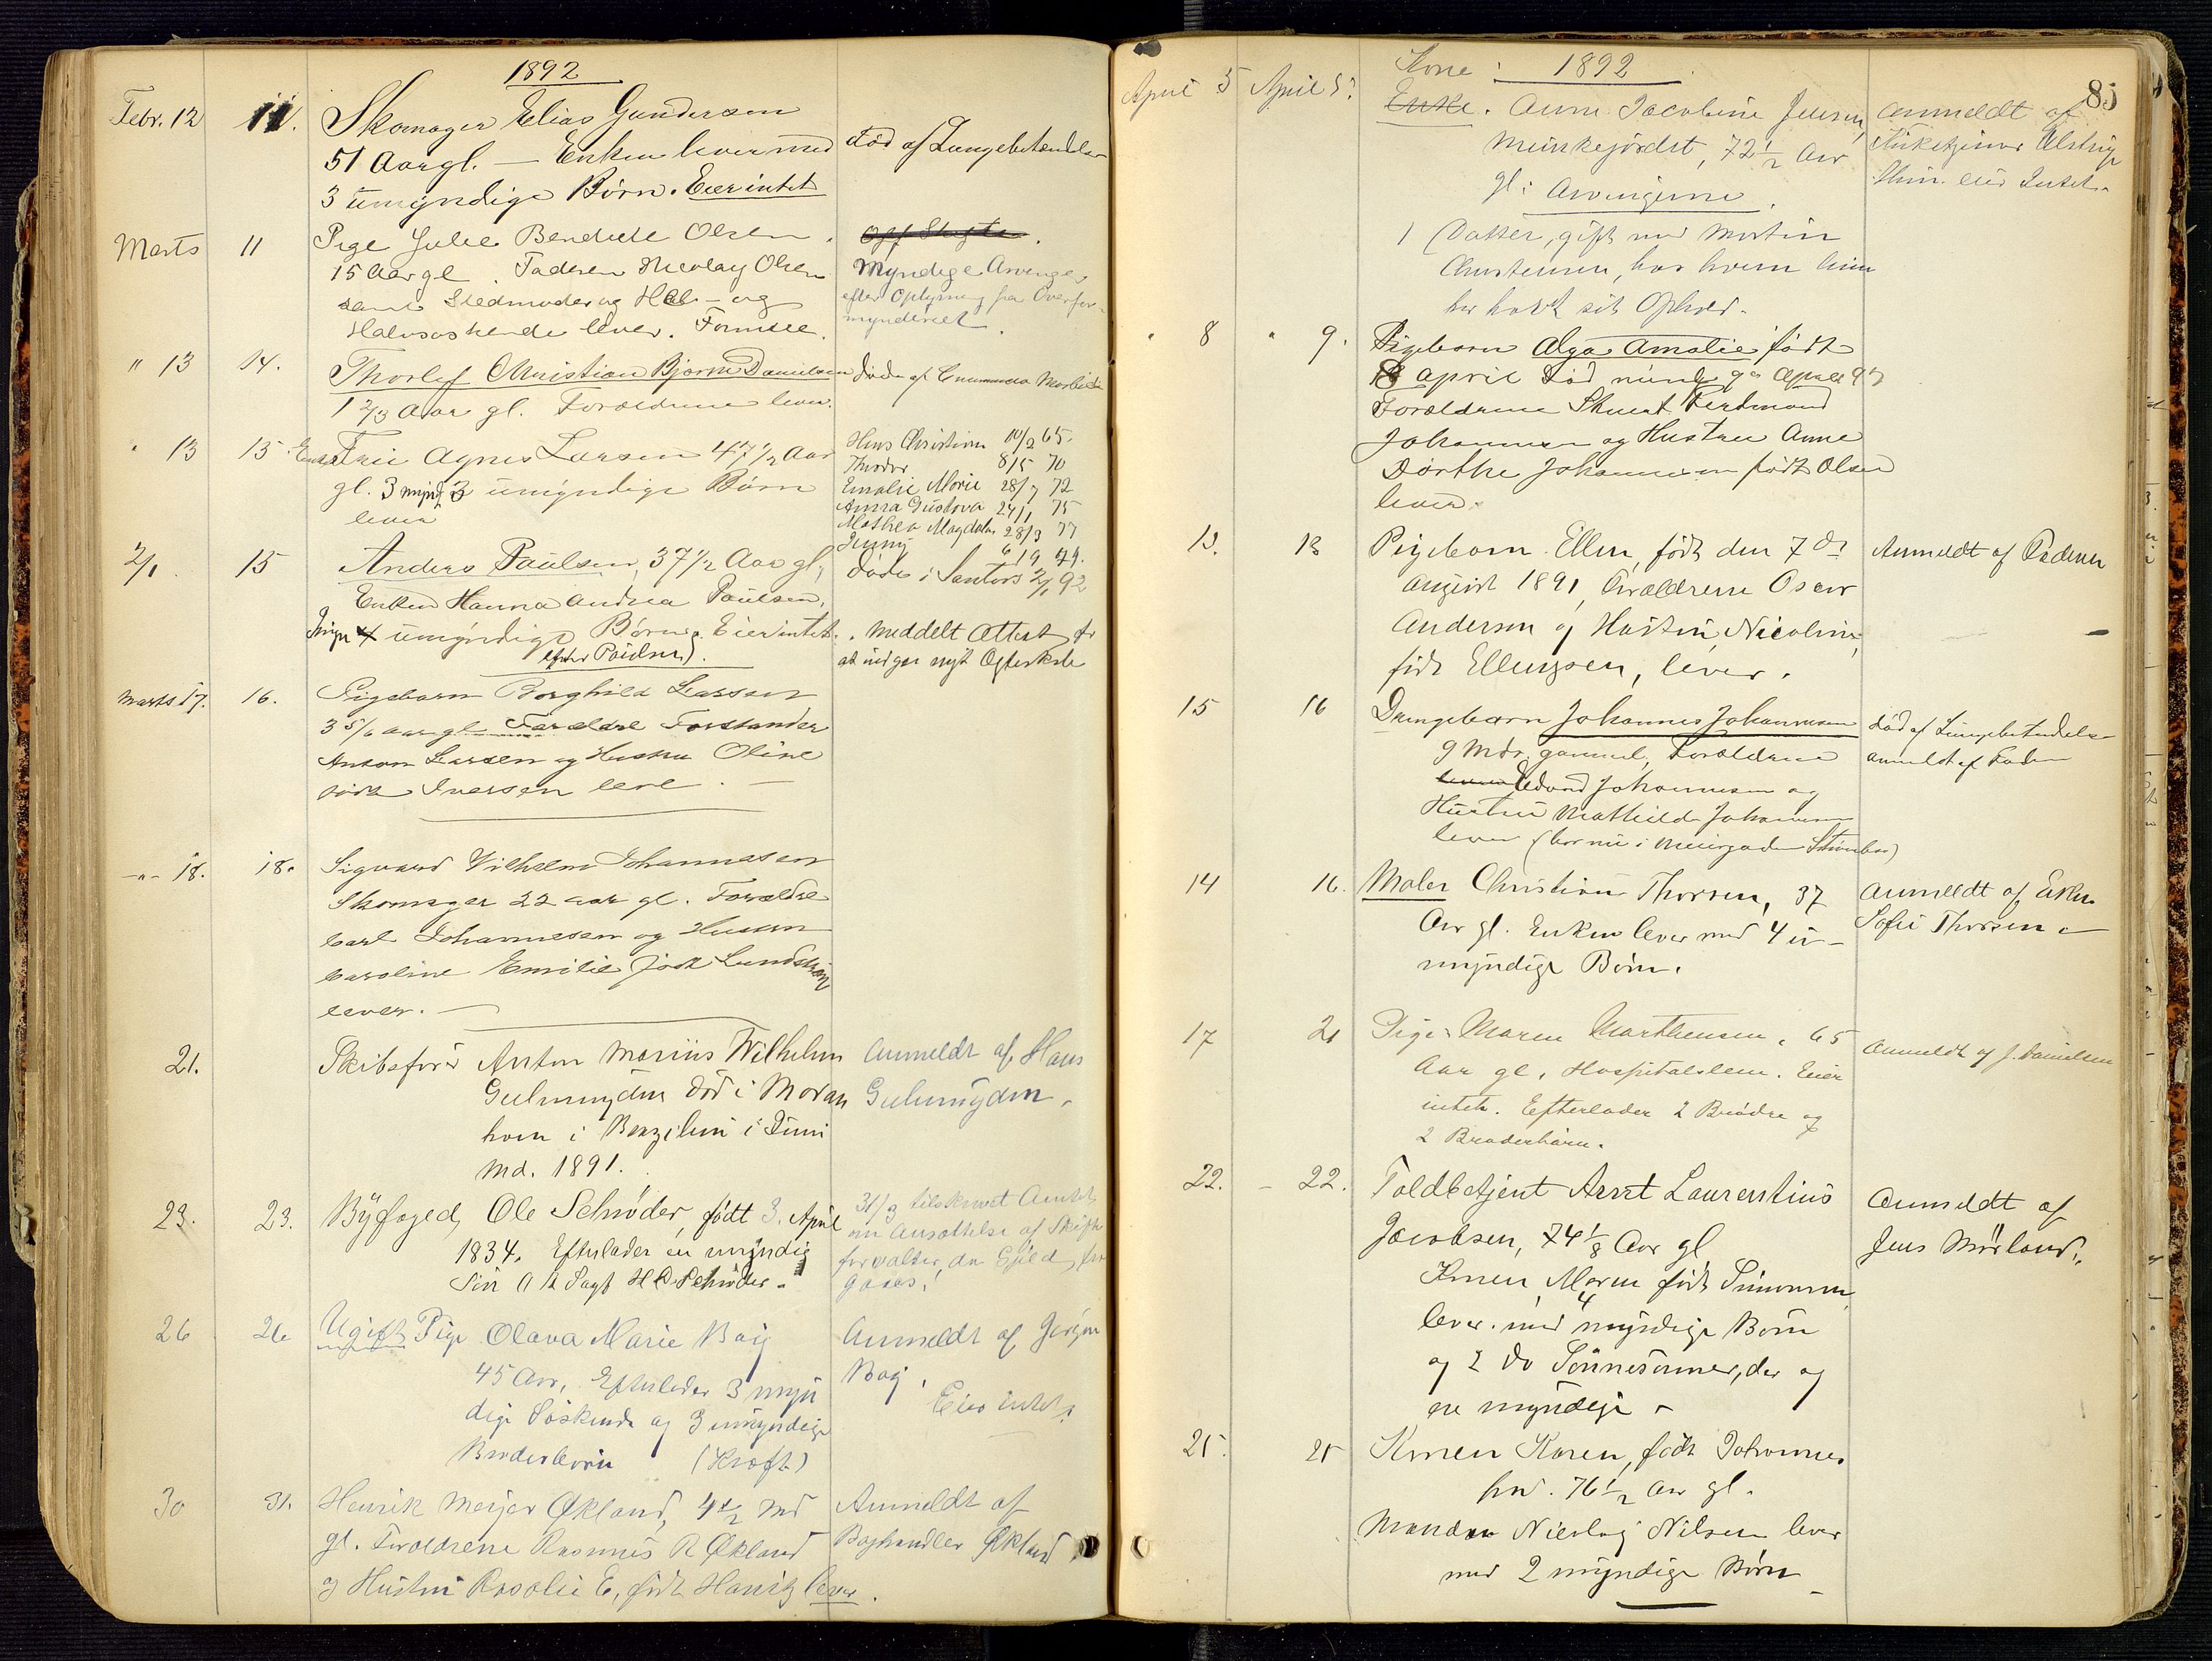 1892
Febr. 12 11. Skomager Elias Gundersen
51 Aar gl. — Enken lever med
3 umyndige Børn. Eier intet
død af Lungebetændelse
Marts 11 Pige Julie Bendicte Olsen.
15 Aar gl. Faderen Nicolay Olsen
samt Stedmoder og Hel- og
Halvsøskende lever. Formue
Off Skifte.
Myndige Arvinger
efter Oplysning fra Overfor-
mynderiet.
" 13 14. Thorlef Christian Bjarne Danielsen
1 2/3 Aar gl. Forældrene lever.
døde af
" 13 15 Enkefrue Agnes Larsen 47 1/2 Aar
gl. 3 mynd 3 umyndige Børn
lever
Hans Christian 10/2 65.
Thodor 8/5 70
Emalie Marie 28/7 72
Anna Gustava 24/1 75
Mathea Magdala 28/3 77
Jenny 6/9 79.
2/1. 15 Anders Paulsen, 37 1/2 Aar gl,
Enken Hanna Andrea Paulsen,
Ingen 4 umyndige Børn. Eier intet.
(efter Paulsen).
døde i Santos 2/1 92
. Meddelt Attest for
at indgaa nyt Ægteskab
Marts 17. 16. Pigebarn Borghild Larsen
3 5/6 aar gl Forældre Forstander
Anton Larsen og Hustru Oline
født Iversen leve. —
-"- 18. 18. Sigvard Vilhelm Johannesen
Skomager 22 aar gl. Forældre
Carl Johannesen og Hustru
Caroline Emilie født Lundstrøm
lever. —
21. Skibsfører Anton Marius Wilhelm
Gulmyden død i Moran
ham i Brazilien i Juni
Md. 1891.
Anmeldt af Hans
Gulmyden.
23. 23. Byfoged Ole Schrøder, født 3. April
1834. Efterlader en myndig
Søn H C Schrøder.
31/3 tilskrevet Amtet
om Ansættelse af Skifte
forvalter, da Gjeld for
26 26 Ugift Pige Olava Marie Boij
45 Aar, Efterlader 3 myn
dige Søskende og 3 umyndige
Broderbørn (Kraft)
Anmeldt af Jørgen
Boij.
Eier intet.
30 31. Henrik Meijer Økland, 4 1/2 Md
gl. Forældrene Rasmus R Økland
og Hustru Rosalie E, født Hanitz lever.
Anmeldt af
Boghandler Økland
85
1892
April 5 April 5? Kone:
Enke. Anne Jacobine Jensen,
Munkejordet, 72 1/2 Aar
gl: Arvingerne.
1 Datter, gift med Martin
Christensen, hos hvem hun
har havt sit Ophold.
Anmeldt af
Kirketjener Alstrup
Hun eier Intet.
" 8 " 9. Pigebarn Alga Amalie født
8 April død
Forældrene Ferdinand
Johannesen og Hustru Anne
Dorthe Johannesen født Olsen
lever.
13. 13 Pigebarn Ellen, født den 7de
August 1891, Forældrene Oscar
Andersen og Hustru Nicoline,
født Ellingsen, lever.
Anmeldt af Faderen
15 16 Drengebarn Johannes Johannesen
9 Mdr gammel, Forældrene
Edvard Johannesen og
Hustru Mathilde Johannesen
lever (bor nu i Meiergaden Stenbo)
død af Lungebetændelse
anmeldt af Fader
14 16. Maler Christian Thorsen, 37
Aar gl. Enken lever med 4 u-
myndige Børn.
Anmeldt af Enken
Sofie Thorsen
17 21 Pige Maren Marthensen. 65
Aar gl. Hospitalslem. Eier
intet. Efterlader 2 Brødre og
2 Broderbørn.
Anmeldt af J. Danielsen
22. – 22. Toldbetjent Arnt Laurentius
Jacobsen, 74 1/8 Aar gl
Konen, Maren født Simonsen,
lever med 4 myndige Børn
og 2 do Sønnesønner, der og
ere myndige –
Anmeldt af
Jens Mørland.
25. 25 Konen Karen, født Johannes
hvd. 76 1/2 Aar gl.
Manden Nicolaj Nilsen lever
med 2 myndige Børn